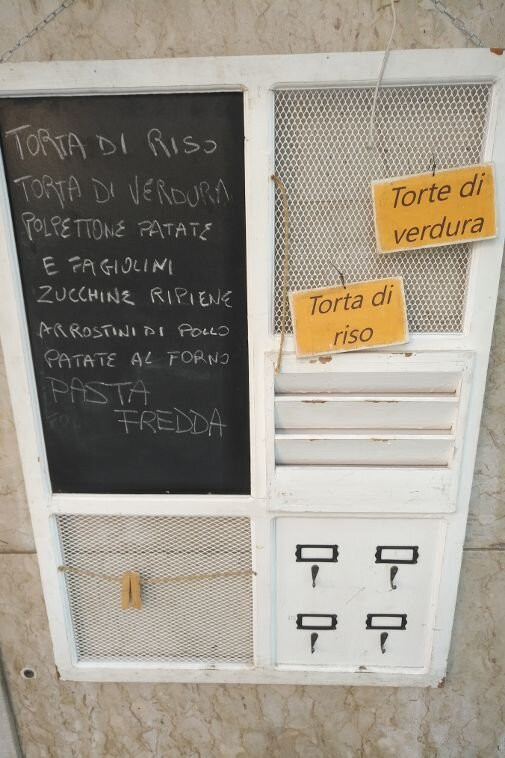 TORTA DI RISO
TORTA DI VERDURA
POLPETTONE PATATE
E FAGIOLINI
ZUCCHINE RIPIENE
ARROSTINI DI POLLO
PATATE AL FORNO
PASTA
FREDDA
Torte di
verdura
Torta di
riso